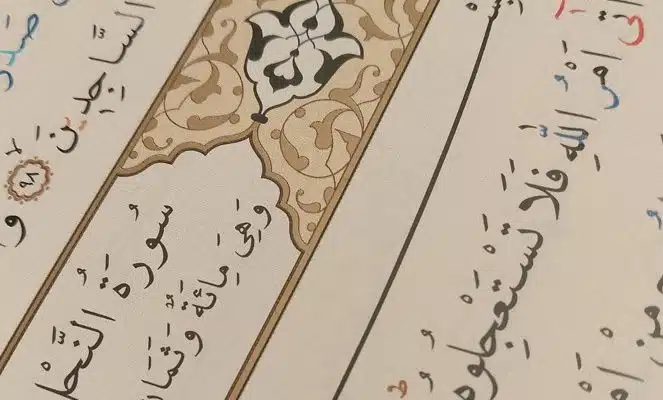 صَدْر
السَّاجِدِينَ ٩٨ وَ
سُورَةُ النَّحْل
وَهِيَ مِائَةٌ وَثَمَا
أَتَىٰ أَمْرُ اللَّهِ فَلَا تَسْتَعْجِلُوهُ
مِنْ أَمْ